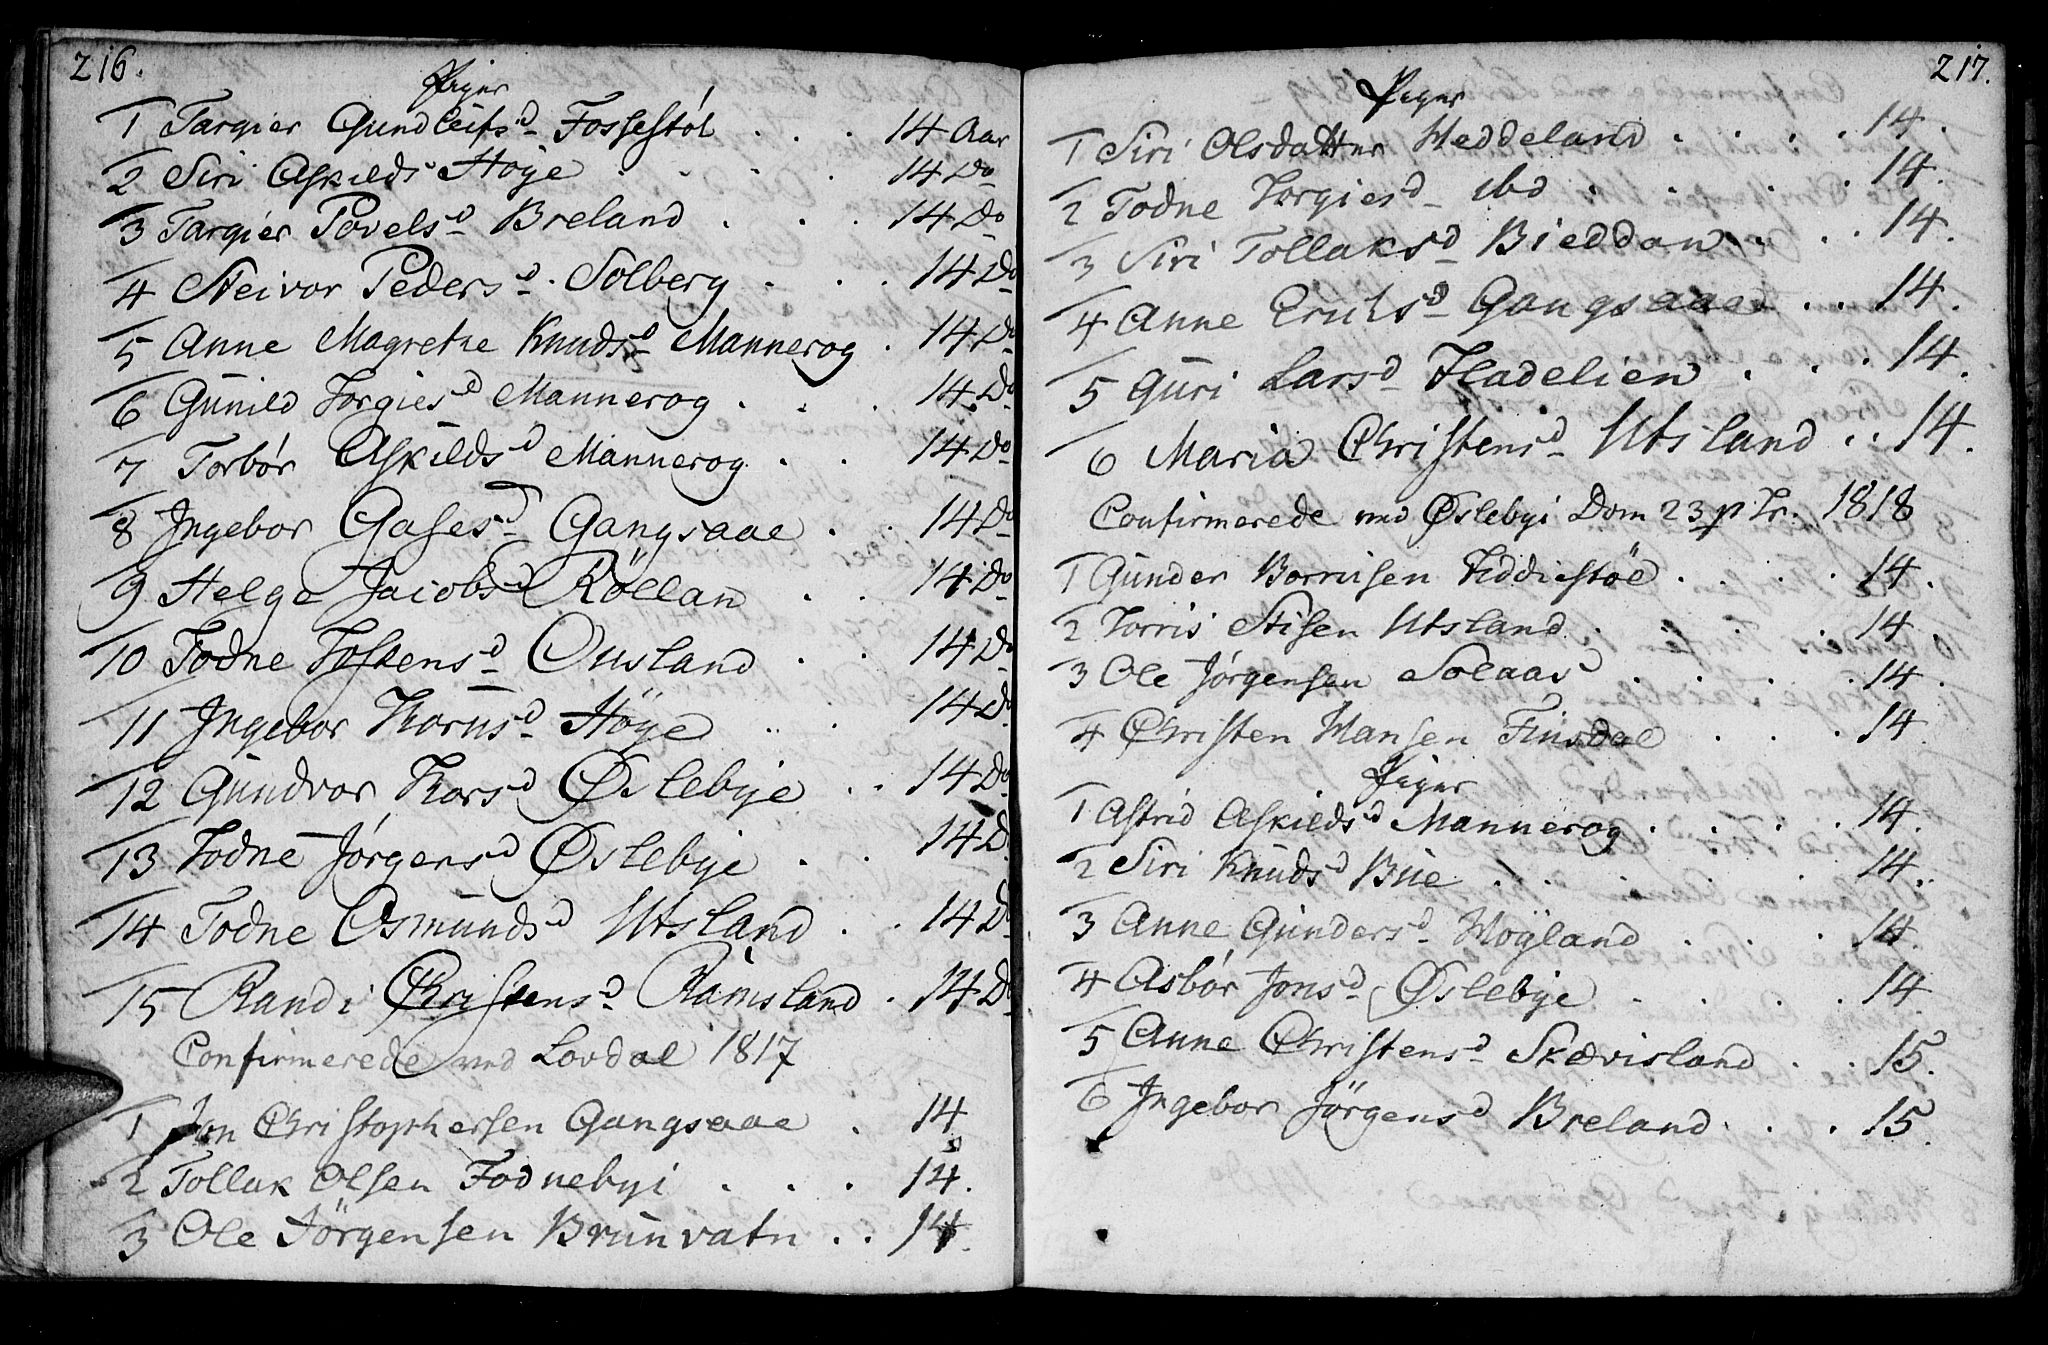 216.
Piger
1 Targier Gundleifsd Fossestøl . . . 14 Aar
2 Siri Askilds Höÿe . . . . 14 Do
3 Targier Povelsd Breland . . . 14 Do
4 Steivor Pedersd. Solberg . . . 14 Do
5 Anne Magrethe Knudsd Mannerog . 14 Do
6 Gunild Torgiesd Mannerog . . . 14 Do
7 Torbør Askildsd Mannerog . . 14 Do
8 Ingebor Gasesd Gangsaae . . 14 Do
9 Helge Jacobsd Röllan . . 14 Do
10 Todne Tostensd Ousland . . 14 Do
11 Ingebor Thorusd Höÿe . . 14 Do
12 Gundvor Thorsd Øslebye . . 14 Do
13 Todne Jørgensd Øslebye . . 14 Do
14 Todne Osmundsd Utsland . . 14 Do
15 Randi Christensd Ramsland . 14 Do
Confirmerede ved Lovdal 1817
1 Jon Christophersen Gangsaae . 14
2 Tollak Olsen Fodnebyi . . . 14.
3 Ole Jörgensen Brunvatn . . 14.
217.
Piger
1 Siri Olsdatter Heddeland . . . . 14.
2 Todne Torgiesd ibd . . . . 14.
3 Siri Tollaksd Bieddan . . . 14.
4 Anne Eriksd Gangsaae . . 14.
5 Guri Larsd Hadelien . . . 14.
6 Maria Christensd Utsland . . 14.
Confirmerede ved Øslebyi Dom 23 p Tr. 1818
1 Gunder Borrusen Kiddiestöl . . . . 14.
2 Torris Stisen Utsland . . . 14
3 Ole Jørgensen Solaas . . . . 14.
4 Christen Hansen Finsdal . . . 14
Piger
1 Astrid Askildsd Mannerog . . . . 14.
2 Siri Knudsd Bue . . . . 14.
3 Anne Gundersd Høÿland . . . 14.
4 Asbør Jonsd Øslebye . . . . 14
5 Anne Christensd Skævisland . . 15.
6 Ingebor Jörgensd Breland . . . 15.